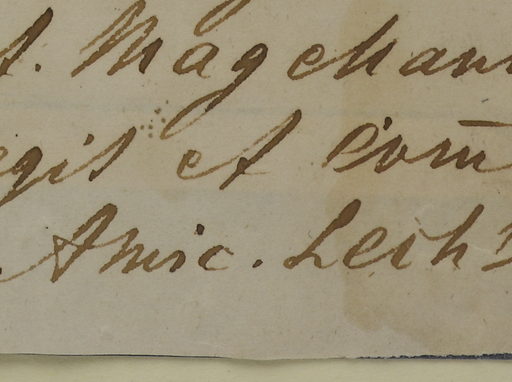 t. Magellani
egit et com̄
Amic. Lech